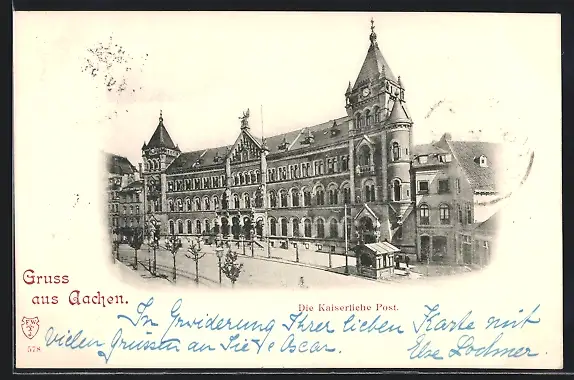 Gruss
aus Aachen.
Die Kaiserliche Post.
578
In Erwiderung Ihrer lieben Karte mit
vielen Grüssen an Sie Oscar.
Else Lochner